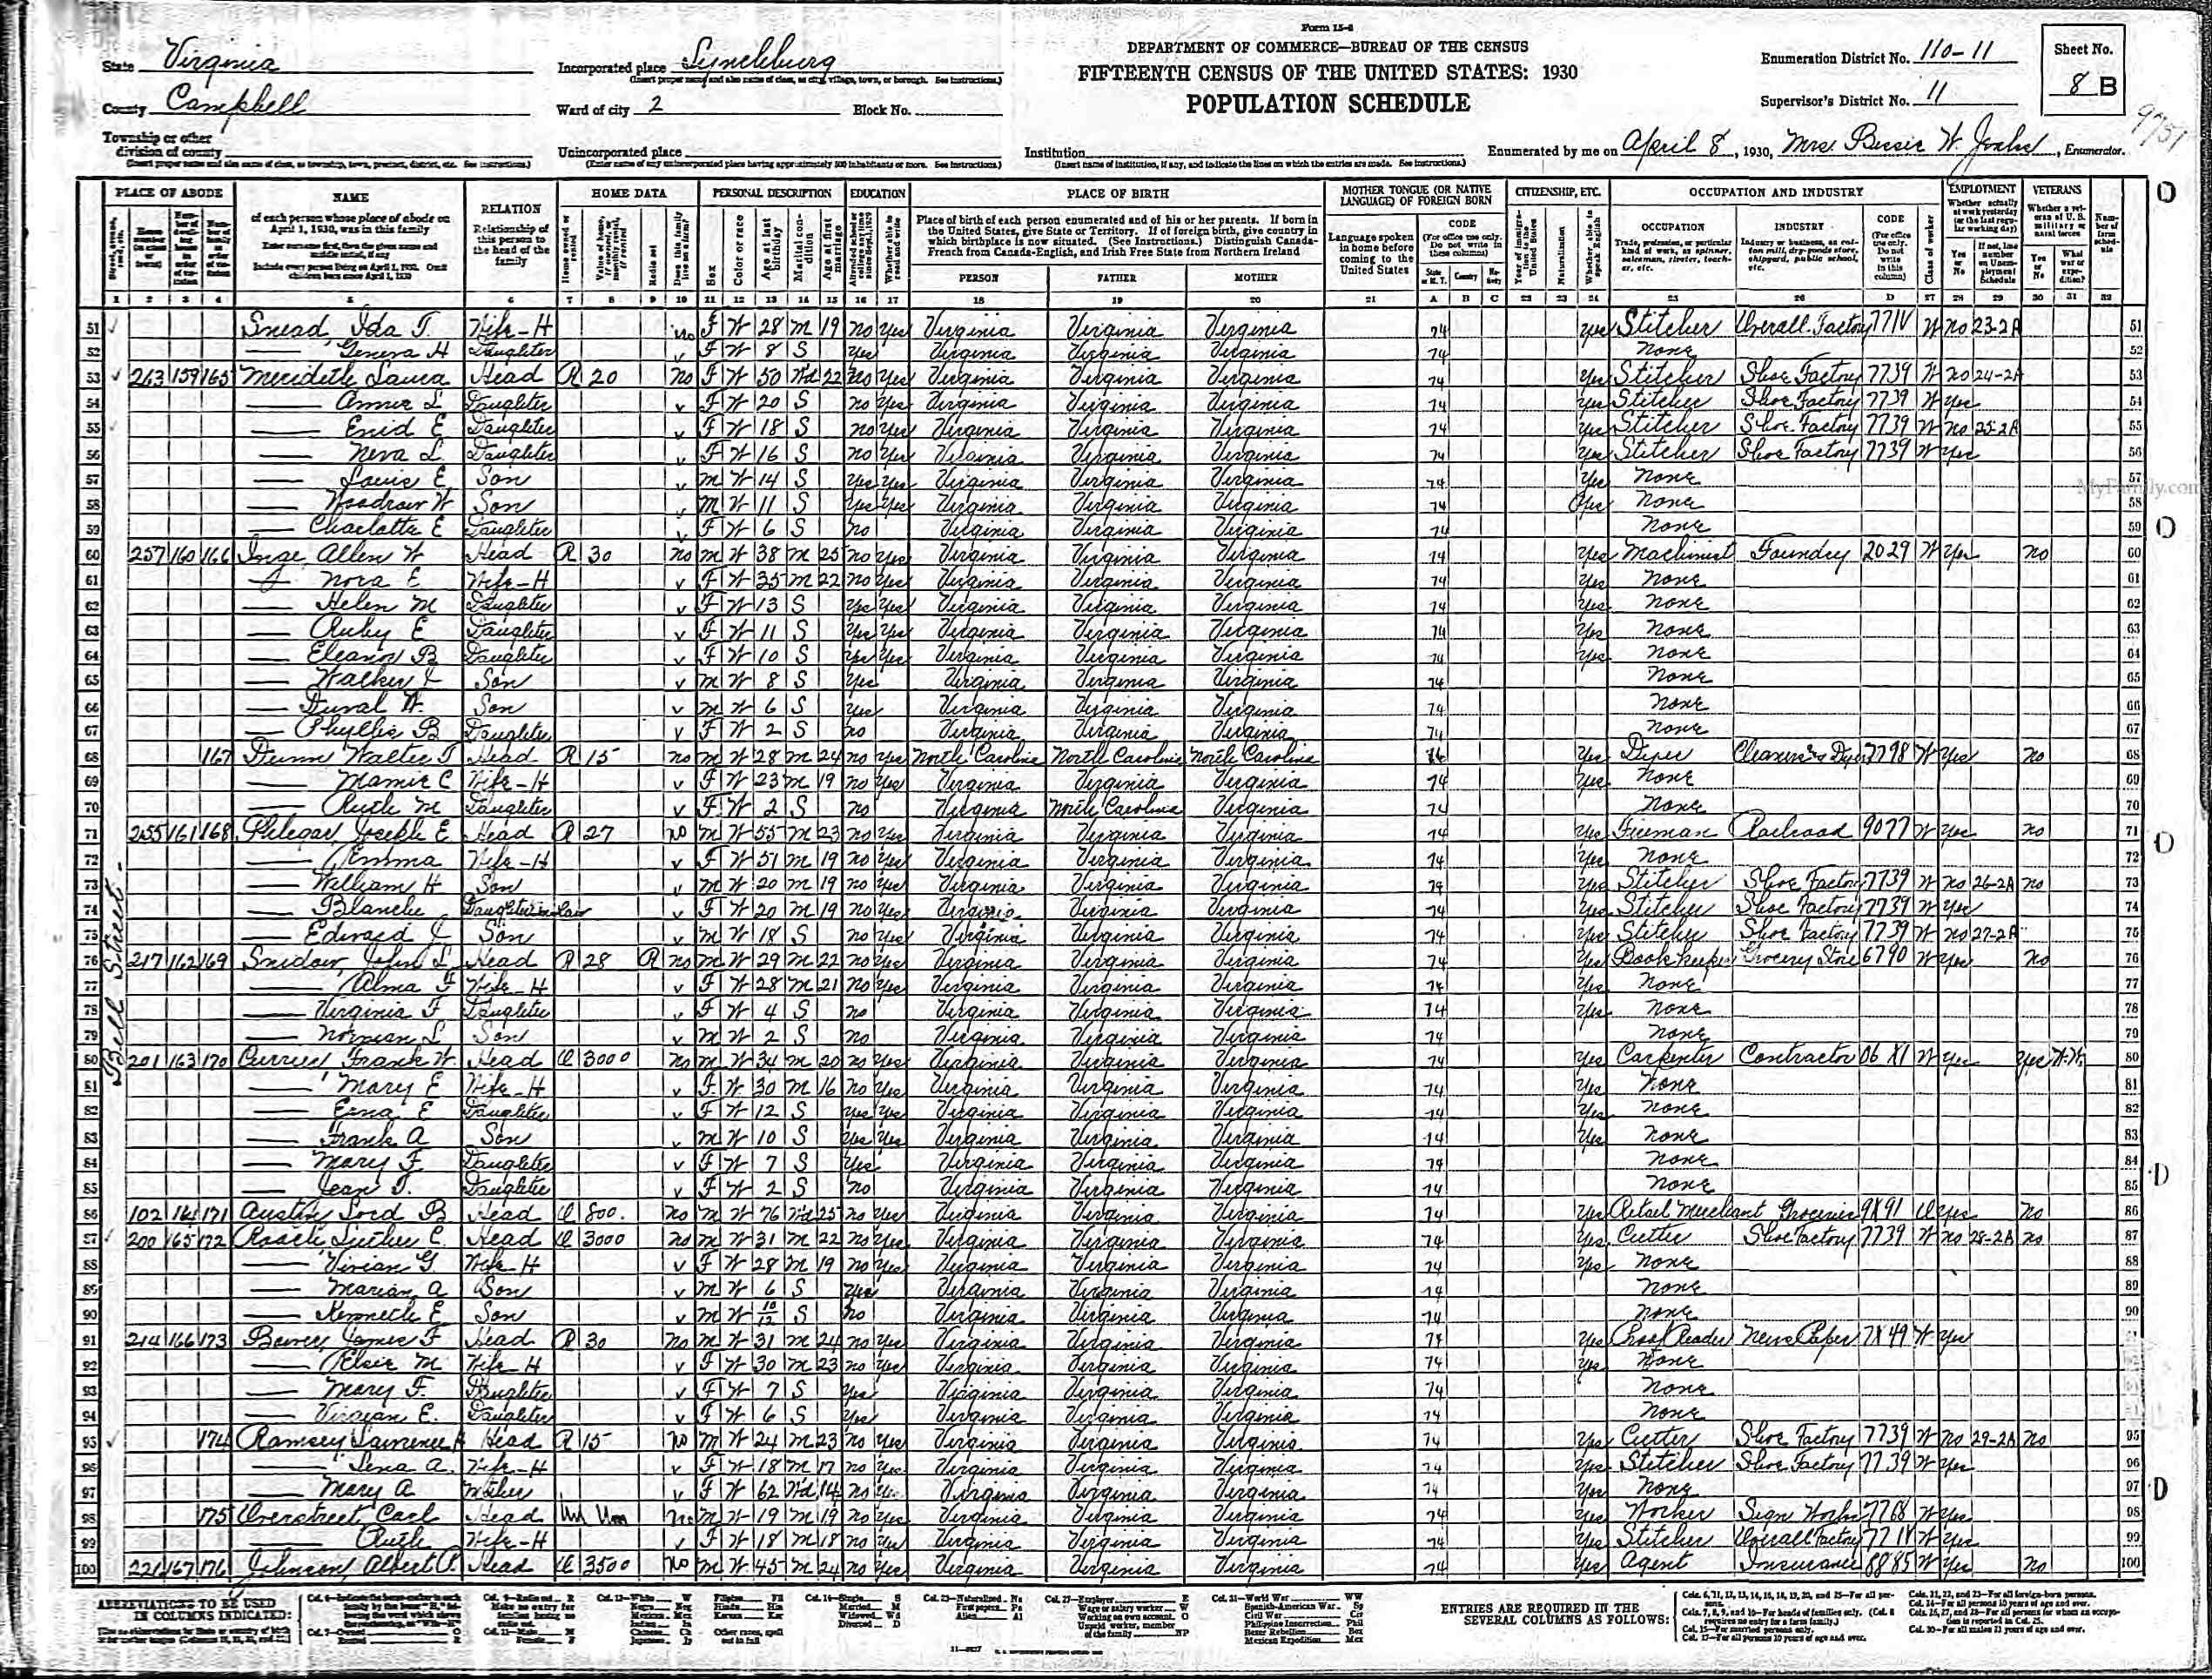 Form 15-6
DEPARTMENT OF COMMERCE—BUREAU OF THE CENSUS
FIFTEENTH CENSUS OF THE UNITED STATES: 1930
POPULATION SCHEDULE
State Virginia
County Campbell
Township or other division of county
Incorporated place Lynchburg
Ward of city 2 Block No.
Unincorporated place
Institution
Enumeration District No. 110-11
Supervisor's District No. 11
Sheet No. 8 B
Enumerated by me on April 8, 1930, Mrs. Bessie W. , Enumerator.
9751
PLACE OF ABODE NAME RELATION HOME DATA PERSONAL DESCRIPTION EDUCATION PLACE OF BIRTH MOTHER TONGUE (OR NATIVE LANGUAGE) OF FOREIGN BORN CITIZENSHIP, ETC. OCCUPATION AND INDUSTRY EMPLOYMENT VETERANS
of each person whose place of abode on April 1, 1930, was in this family
Relationship of this person to the head of the family
Place of birth of each person enumerated and of his or her parents. If born in the United States, give State or Territory. If of foreign birth, give country in which birthplace is now situated. (See Instructions.) Distinguish Canada-French from Canada-English, and Irish Free State from Northern Ireland
PERSON FATHER MOTHER
Language spoken in home before coming to the United States
CODE
OCCUPATION INDUSTRY CODE
Bell Street
51 Snead, Ida T. Wife-H no F W 28 M 19 no yes Virginia Virginia Virginia 74 yes Stitcher Overall Factory 771V W no 23-2A 51
52 Geneva H Daughter v F W 8 S yes Virginia Virginia Virginia 74 none 52
53 263 159 165 Merideth Laura Head R 20 no F W 50 Wd 22 no yes Virginia Virginia Virginia 74 yes Stitcher Shoe Factory 7739 W no 24-2A 53
54 Annie L Daughter v F W 20 S no yes Virginia Virginia Virginia 74 yes Stitcher Shoe Factory 7739 W yes 54
55 Enid E Daughter v F W 18 S no yes Virginia Virginia Virginia 74 yes Stitcher Shoe Factory 7739 W no 25-2A 55
56 Neva L Daughter v F W 16 S no yes Virginia Virginia Virginia 74 yes Stitcher Shoe Factory 7739 W yes 56
57 Louis E Son v M W 14 S yes yes Virginia Virginia Virginia 74 yes none 57
MyFamily.com
58 Woodrow W Son v M W 11 S yes yes Virginia Virginia Virginia 74 yes none 58
59 Charlotte E Daughter v F W 6 S no Virginia Virginia Virginia 74 none 59
60 257 160 166 Inge Allen W Head R 30 no M W 38 M 25 no yes Virginia Virginia Virginia 74 yes Machinist Foundry 2029 W yes no 60
61 Nora E Wife-H v F W 35 M 22 no yes Virginia Virginia Virginia 74 yes none 61
62 Helen M Daughter v F W 13 S yes yes Virginia Virginia Virginia 74 yes none 62
63 Ruby E Daughter v F W 11 S yes yes Virginia Virginia Virginia 74 yes none 63
64 Eleanor B Daughter v F W 10 S yes yes Virginia Virginia Virginia 74 yes none 64
65 Walker Son v M W 8 S yes Virginia Virginia Virginia 74 none 65
66 Duval W. Son v M W 6 S yes Virginia Virginia Virginia 74 none 66
67 Phyllis B Daughter v F W 2 S no Virginia Virginia Virginia 74 none 67
68 167 Dunn Walter T Head R 15 no M W 28 M 24 no yes North Carolina North Carolina North Carolina 76 yes Dyer Cleaners & Dyers 7798 W yes no 68
69 Mamie C Wife-H v F W 23 M 19 no yes Virginia Virginia Virginia 74 yes none 69
70 Ruth M Daughter v F W 2 S no Virginia North Carolina Virginia 74 none 70
71 255 161 168 Phlegar Joseph E. Head R 27 no M W 55 M 23 no yes Virginia Virginia Virginia 74 yes Fireman Railroad 9077 W yes no 71
72 Emma Wife-H v F W 51 M 19 no yes Virginia Virginia Virginia 74 yes none 72
73 William H Son v M W 20 M 19 no yes Virginia Virginia Virginia 74 yes Stitcher Shoe Factory 7739 W no 26-2A no 73
74 Blanche Daughter in law v F W 20 M 19 no yes Virginia Virginia Virginia 74 yes Stitcher Shoe Factory 7739 W yes 74
75 Edward J Son v M W 18 S no yes Virginia Virginia Virginia 74 yes Stitcher Shoe Factory 7739 W no 27-2A 75
76 217 162 169 Snidow, John L Head R 28 R no M W 29 M 22 no yes Virginia Virginia Virginia 74 yes Bookkeeper Grocery Store 6790 W yes no 76
77 Alma F Wife-H v F W 28 M 21 no yes Virginia Virginia Virginia 74 yes none 77
78 Virginia F Daughter v F W 4 S no Virginia Virginia Virginia 74 yes none 78
79 Norman L Son v M W 2 S no Virginia Virginia Virginia 74 none 79
80 201 163 170 Frank W. Head O 3000 no M W 34 M 20 no yes Virginia Virginia Virginia 74 yes Carpenter Contractor 06X1 W yes yes W.W. 80
81 Mary E Wife-H v F W 30 M 16 no yes Virginia Virginia Virginia 74 yes none 81
82 Erna E Daughter v F W 12 S yes yes Virginia Virginia Virginia 74 yes none 82
83 Frank A Son v M W 10 S yes yes Virginia Virginia Virginia 74 yes none 83
84 Mary F Daughter v F W 7 S yes Virginia Virginia Virginia 74 none 84
85 Jean T. Daughter v F W 2 S no Virginia Virginia Virginia 74 none 85
86 102 164 171 Austin B. Head O 800. no M W 76 Wd 25 no yes Virginia Virginia Virginia 74 yes Retail Merchant Groceries 9X91 O yes no 86
87 200 165 172 Roach Luther C. Head O 3000 no M W 31 M 22 no yes Virginia Virginia Virginia 74 yes Cutter Shoe Factory 7739 W no 28-2A no 87
88 Vivian G. Wife-H v F W 28 M 19 no yes Virginia Virginia Virginia 74 yes none 88
89 Marian A Son v M W 6 S yes Virginia Virginia Virginia 74 none 89
90 Kenneth E Son v M W 10/12 S no Virginia Virginia Virginia 74 none 90
91 214 166 173 James F Head R 30 no M W 31 M 24 no yes Virginia Virginia Virginia 74 yes Proof Reader News Paper 7X49 W yes
92 Elsie M Wife-H v F W 30 M 23 no yes Virginia Virginia Virginia 74 yes none 92
93 Mary F. Daughter v F W 7 S yes Virginia Virginia Virginia 74 none
94 Virgian E. Daughter v F W 6 S yes Virginia Virginia Virginia 74 none
95 174 Ramsey Lawrence Head R 15 no M W 24 M 23 no yes Virginia Virginia Virginia 74 yes Cutter Shoe Factory 7739 W no 29-2A no 95
96 Lena A. Wife-H v F W 18 M 17 no yes Virginia Virginia Virginia 74 yes Stitcher Shoe Factory 7739 W yes 96
97 Mary A Mother v F W 62 Wd 14 no yes Virginia Virginia Virginia 74 yes none 97
98 175 Overstreet Carl Head Un Un no M W 19 M 19 no yes Virginia Virginia Virginia 74 yes Worker Sign Works 7768 W yes 98
99 Ruth Wife-H v F W 18 M 18 no yes Virginia Virginia Virginia 74 yes Stitcher Overall Factory 771V W yes 99
100 221 167 176 Johnson Albert P. Head O 3500 no M W 45 M 24 no yes Virginia Virginia Virginia 74 yes Agent Insurance 8885 W yes no 100
ABBREVIATIONS TO BE USED IN COLUMNS INDICATED:
ENTRIES ARE REQUIRED IN THE SEVERAL COLUMNS AS FOLLOWS: